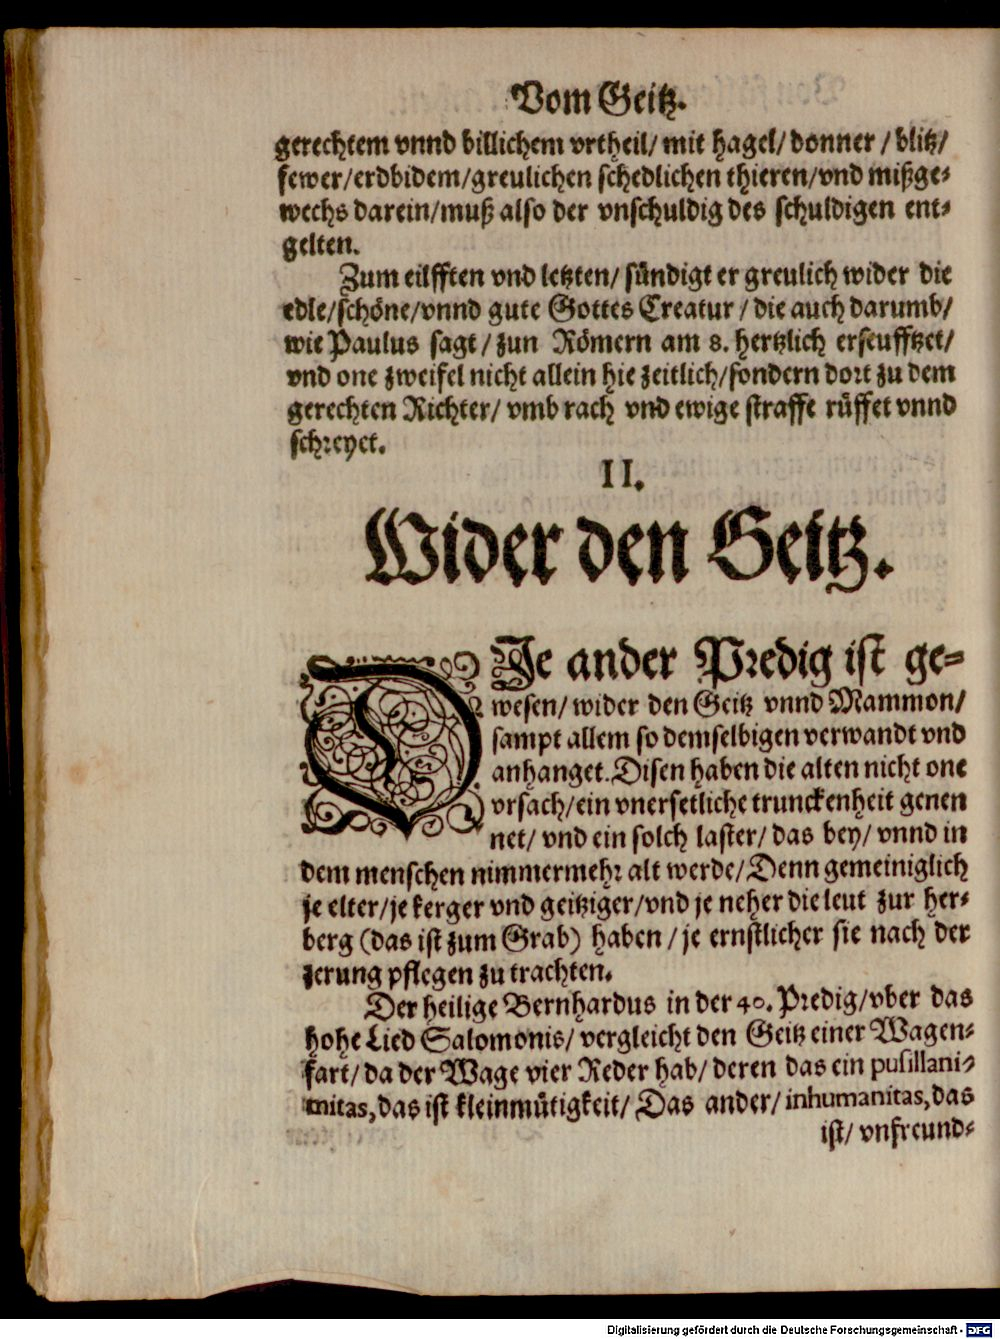 Vom Geitz.
gerechtem vnnd billichem vrtheil/ mit hagel/ donner / blitz/
fewer/erdbidem/greulichen schedlichen thieren/vnd mißge⸗
wechs darein/muß also der vnschuldig des schuldigen ent⸗
gelten.
Zum eilfften vnd letzten/ sündigt er greulich wider die
edle/schöne/vnnd gute Gottes Creatur / die auch darumb/
wie Paulus sagt / zun Römern am 8. hertzlich erseufftzet/
vnd one zweifel nicht allein hie zeitlich/sondern dort zu dem
gerechten Richter/ vmb rach vnd ewige straffe rüffet vnnd
schreyet.
II.
Wider den Geitz.
DJe ander Predig ist ge⸗
wesen/ wider den Geitz vnnd Mammon/
sampt allem so demselbigen verwandt vnd
anhanget. Disen haben die alten nicht one
vrsach/ein vnersetliche trunckenheit genen
net/ vnd ein solch laster/ das bey/ vnnd in
dem menschen nimmermehr alt werde/ Denn gemeiniglich
je elter/je kerger vnd geitziger/vnd je neher die leut zur her⸗
berg (das ist zum Grab) haben / je ernstlicher sie nach der
zerung pflegen zu trachten.
Der heilige Bernhardus in der 40. Predig/vber das
hohe Lied Salomonis/ vergleicht den Geitz einer Wagen⸗
fart/ da der Wage vier Reder hab/ deren das ein pusillani⸗
mitas, das ist kleinmütigkeit/ Das ander/ inhumanitas, das
ist/ vnfreund⸗
Digitalisierung gefördert durch die Deutsche Forschungsgemeinschaft - DFG